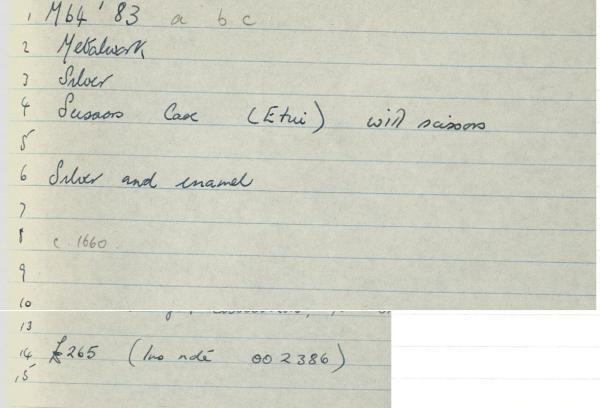 1 M64'83 a b c
2 Metalwork
3 Silver
4 Scissors Case (Etui) with scissors
5
6 Silver and enamel
7
8 c. 1660.
9
10
13
14 £265 (Ino ndé 002386)
15